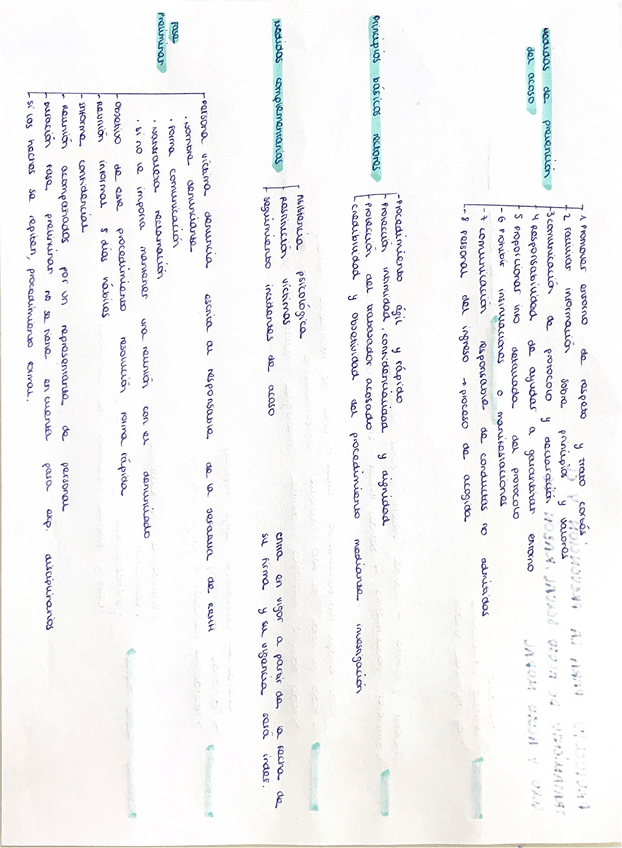 Medidas de prevención
del acoso
1 Promover entorno de respeto y trato cortés
2 Facilitar información sobre principios y valores
3 Comunicación de protocolo y declaración
4 Responsabilidad de ayudar a garantizar entorno
5 Proporcionar info detallada del protocolo
- 6 Prohibir insinuaciones o manifestaciones
- 7 Comunicación responsable de conductas no admitidas
- 8 Personal del ingreso → proceso de acogida
Principios básicos rectores
- Procedimiento ágil y rápido
- Protección intimidad, confidencialidad y dignidad
- Protección del trabajador acosado
- Credibilidad y objetividad del procedimiento mediante investigación
Medidas complementarias
Asistencia psicológica
Restitución víctimas
Seguimiento incidentes de acoso
entra en vigor a partir de la fecha de
su firma y su vigencia será indef.
Fase
Preliminar
- Persona víctima denuncia escrita al responsable de la jefatura de RRHH
· Nombre denunciante
· Forma comunicación
· Naturaleza reclamación
· Si no le importa mantener una reunión con el denunciado
- Objetivo de este procedimiento resolución forma rápida
- Reunión informal 5 días hábiles
- Informe confidencial
- Reunión acompañados por un representante de personal
- Duración fase preliminar no se tiene en cuenta para exp. disciplinarios
- Si los hechos se repiten, procedimiento formal.